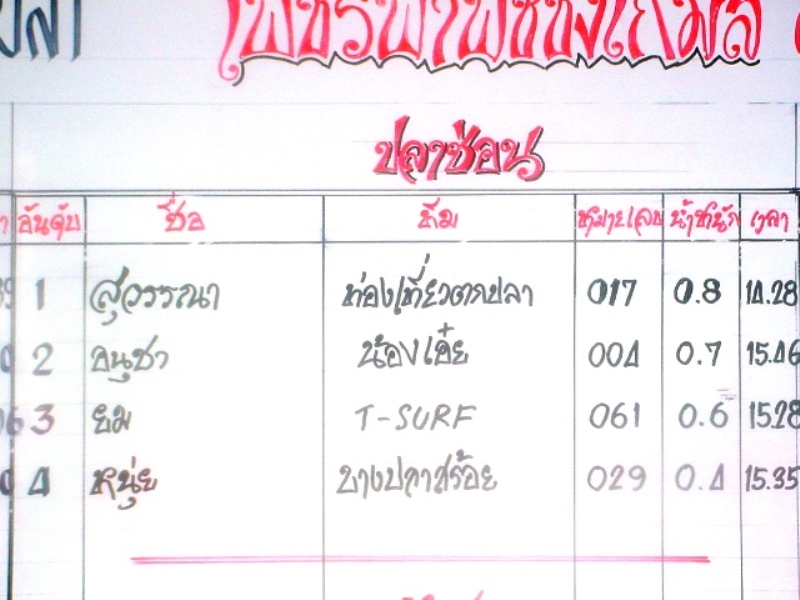 ปลา เพชรฟ้าฟิชชิ่งเกมส์
ปลาช่อน
อันดับ ชื่อ ทีม หมายเลข น้ำหนัก เวลา
1 สุวรรณา ท่องเที่ยวตกปลา 017 0.8 14.28
2 อนุชา น้องเอ๋ย 004 0.7 15.46
3 ยม T-SURF 061 0.6 15.28
4 หนุ่ย บางปลาสร้อย 029 0.4 15.35